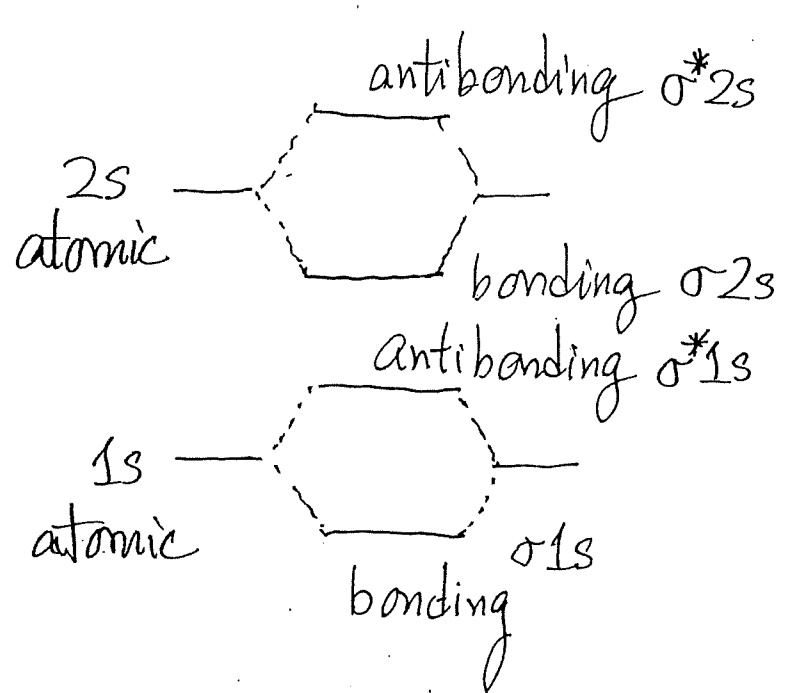 antibonding σ*2s
2s
atomic
bonding σ2s
antibonding σ*1s
1s
atomic
σ1s
bonding